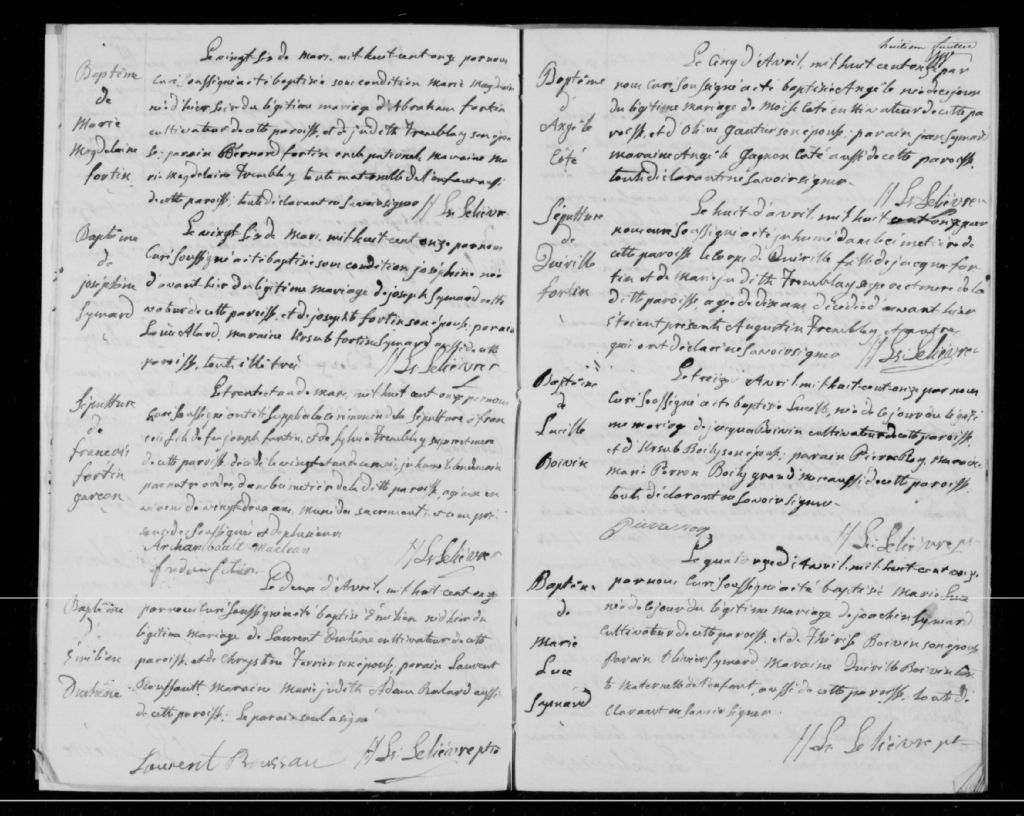 Baptême
de
Marie
Magdelaine
fortin
Le vingt six de mars, mil huit cent onze par nous
Curé soussigné a été baptisée sous condition Marie Magdelaine
née d'hier soir du légitime mariage d'Abraham fortin
cultivateur de cette paroisse, et de judith Tremblay son épou
se; parain Bernard fortin oncle paternel maraine Ma
rie Magdelaine Tremblay tante maternelle de l'enfant aussi
de cette paroisse; touts déclarant ne savoir signer
Ls Lelièvre
Baptême
de
joséphine
Symard
Le vingt six de Mars, mil huit cent onze par nous
Curé soussigné a été baptisée sous condition joséphine née
d'avant hier du légitime mariage de joseph Symard culti
vateur de cette paroisse, et de josephte fortin son épouse; parain
Louis Alard, maraine Ursule fortin Symard aussi de cette
paroisse, touts
Ls Lelièvre
Sépulture
de
francois
fortin
garçon
Le trente et un de mars, mil huit cent onze par nous
Curé soussigné ont été suppléé la cérémonie de la Sépulture à fran
cois fils de feu joseph fortin, et de Sylvie Tremblay ses pere et mere
de cette paroisse décédé le vingt et un de ce mois, inhumé le lendemain
par notre ordre, dans le cimetière de la dite paroisse, agé un en
viron de vingt deux ans, muni des sacrements; et ce en pré
sence des soussignés et de plusieurs
Archambault Maclean
Ls Lelièvre
Baptême
d'
Émilien
Duchêne
Le deux d'Avril, mil huit cent onze
par nous Curé soussigné a été baptisé Émilien né d'hier du
légitime mariage de Laurent Duchêne cultivateur de cette
paroisse, et de Chrystine Terrier son épouse, parain Laurent
maraine Marie judith Adam Rolard aussi
de cette paroisse; Le parain seul a signé
Laurent Rousseau Ls Lelièvre ptre
huitieme feuillet
Baptême
d'
Angèle
Côté
Le Cinq d'Avril, mil huit cent onze par
nous Curé soussigné a été baptisée Angèle née de ce jour
du légitime mariage de Moise Coté cultivateur de cette pa
roisse, et d'Olive Gautier son épouse; parain jean Symard
maraine Angèle Gagnon Coté aussi de cette paroisse,
touts déclarant ne savoir signer
Ls Lelièvre
Sépulture
de
Duiville
fortin
Le huit d'avril, mil huit cent onze par
nous curé soussigné a été inhumé dans le cimetière de
cette paroisse le corps de Duiville fille de jacques for
tin et de Marie judith Tremblay ses pere et mere de la
dite paroisse, agée de dix ans, décédée d'avant hier
Etoient presents Augustin Tremblay, et autre
qui ont déclaré ne savoir signer Ls Lelièvre
Baptême
de
Lucille
Boivin
Le treize Avril, mil huit cent onze par nous
Curé soussigné a été baptisée Lucille, née de ce jour du légiti
me mariage de jacques Boivin cultivateur de cette paroisse,
et d'Ursule Boily son épouse; parain Pierre Roy, maraine
Marie Perron Boily grand mere aussi de cette paroisse,
touts déclarant ne savoir signer
Ls Lelièvre ptre
Baptême
de
Marie
Luce
Symard
Le quatorze d'Avril, mil huit cent onze,
par nous Curé soussigné a été baptisée Marie Luce
née de ce jour du légitime mariage de joachim Symard
Cultivateur de cette paroisse, et de Thérèse Boivin son épouse
Parain Olivier Symard Maraine Duiville Boivin tan
te maternelle de l'enfant, aussi de cette paroisse, touts dé
clarant ne savoir signer
Ls Lelièvre ptre